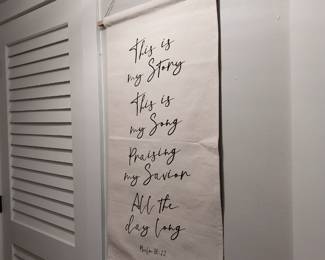 This is
my Story
This is
my Song
Praising
my Savior
All the
day long